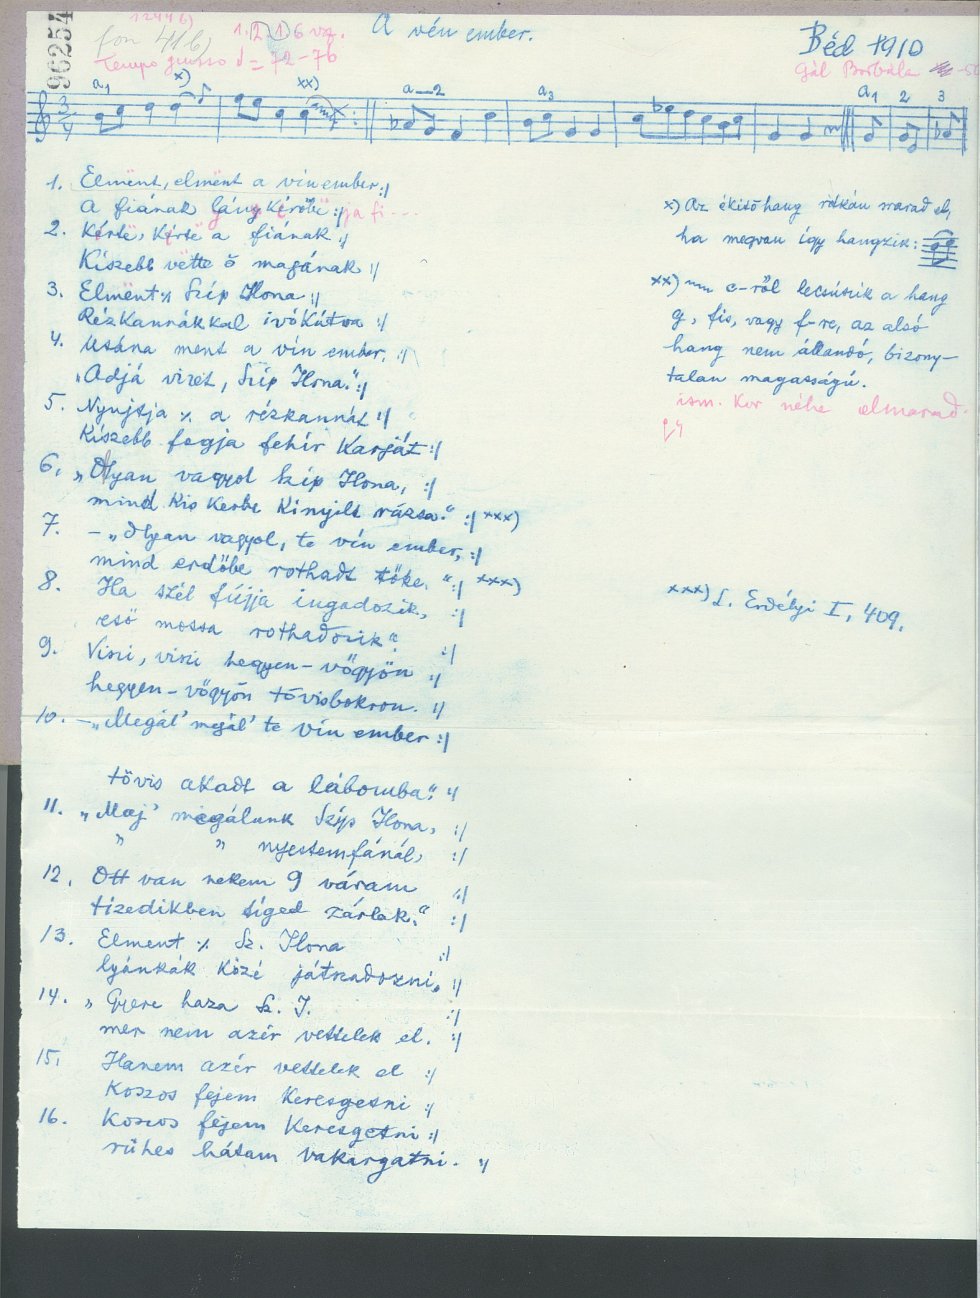 96254
12446)
fon 41b)
1. 2. 1. 6 vz.
A vén ember.
Béd 1910
Tempo giusto = 72-76
Gál Borbála
a1 x) xx) a—2 a3 a1 2 3
3/4
1. Elmënt, elmënt a vín ember :/
A fiának lány kérőbe :/ ja fi - - -
2. Kérte, kérte a fiának :/
Kiszebb vëtte ő magának :/
3. Elmënt ٪ Szíp Ilona :/
Rézkannákkal ivókútra :/
4. Utána ment a vín ember. :/
"Adjá vizet, Szíp Ilona." :/
5. Nyujtja ٪ a rézkannát :/
Kiszebb fogja fehír karját :/
6. „Olyan vagyol szíp Ilona, :/
mind kis kerbe kinyilt rózsa." :/ xxx)
7. – „Olyan vagyol, te vín ember, :/
mind erdőbe rothadt tőke. " :/ xxx)
8. Ha szél fújja ingadozik, :/
eső mossa rothadozik." :/
9. Viszi, viszi hegyen-vőgyön :/
hegyen-vőgyön tövisbokron. :/
10. – „Megál' megál' te vín ember :/
tövis akadt a lábomba." :/
11. „Maj' megálunk Szíp Ilona, :/
" " nyestemfánál, :/
12. Ott van nekem 9 váram :/
tizedikben tíged zárlak." :/
13. Elment ٪ Sz. Ilona :/
lyánkák közé játszadozni. :/
14. „Gyere haza Sz. I. :/
mer nem azér vettelek el. :/
15. Hanem azér vettelek el :/
Koszos fejem keresgetni :/
16. Koszos fejem keresgetni :/
rühes hátam vakargatni. :/
x) Az ékítőhang ritkán marad el,
ha megvan így hangzik:
xx) c-ről lecsúszik a hang
g, fis, vagy f-re, az alsó
hang nem állandó, bizony-
talan magasságú.
ism. kor néha elmarad.
xxx) L. Erdélyi I, 409.